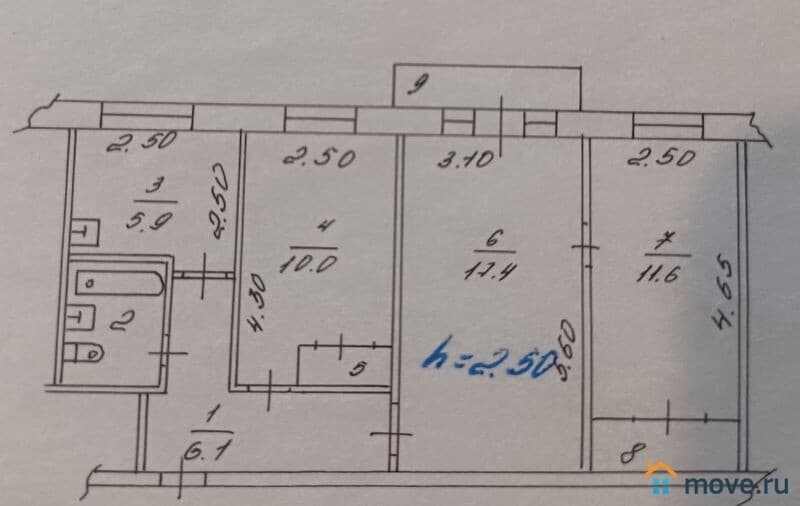 9
2.50
2.50
3.10
2.50
3
5.9
2.50
4
10.0
6
17.4
7
11.6
4.30
2
4.65
h=2.50
5.60
5
1
6.1
8
move.ru